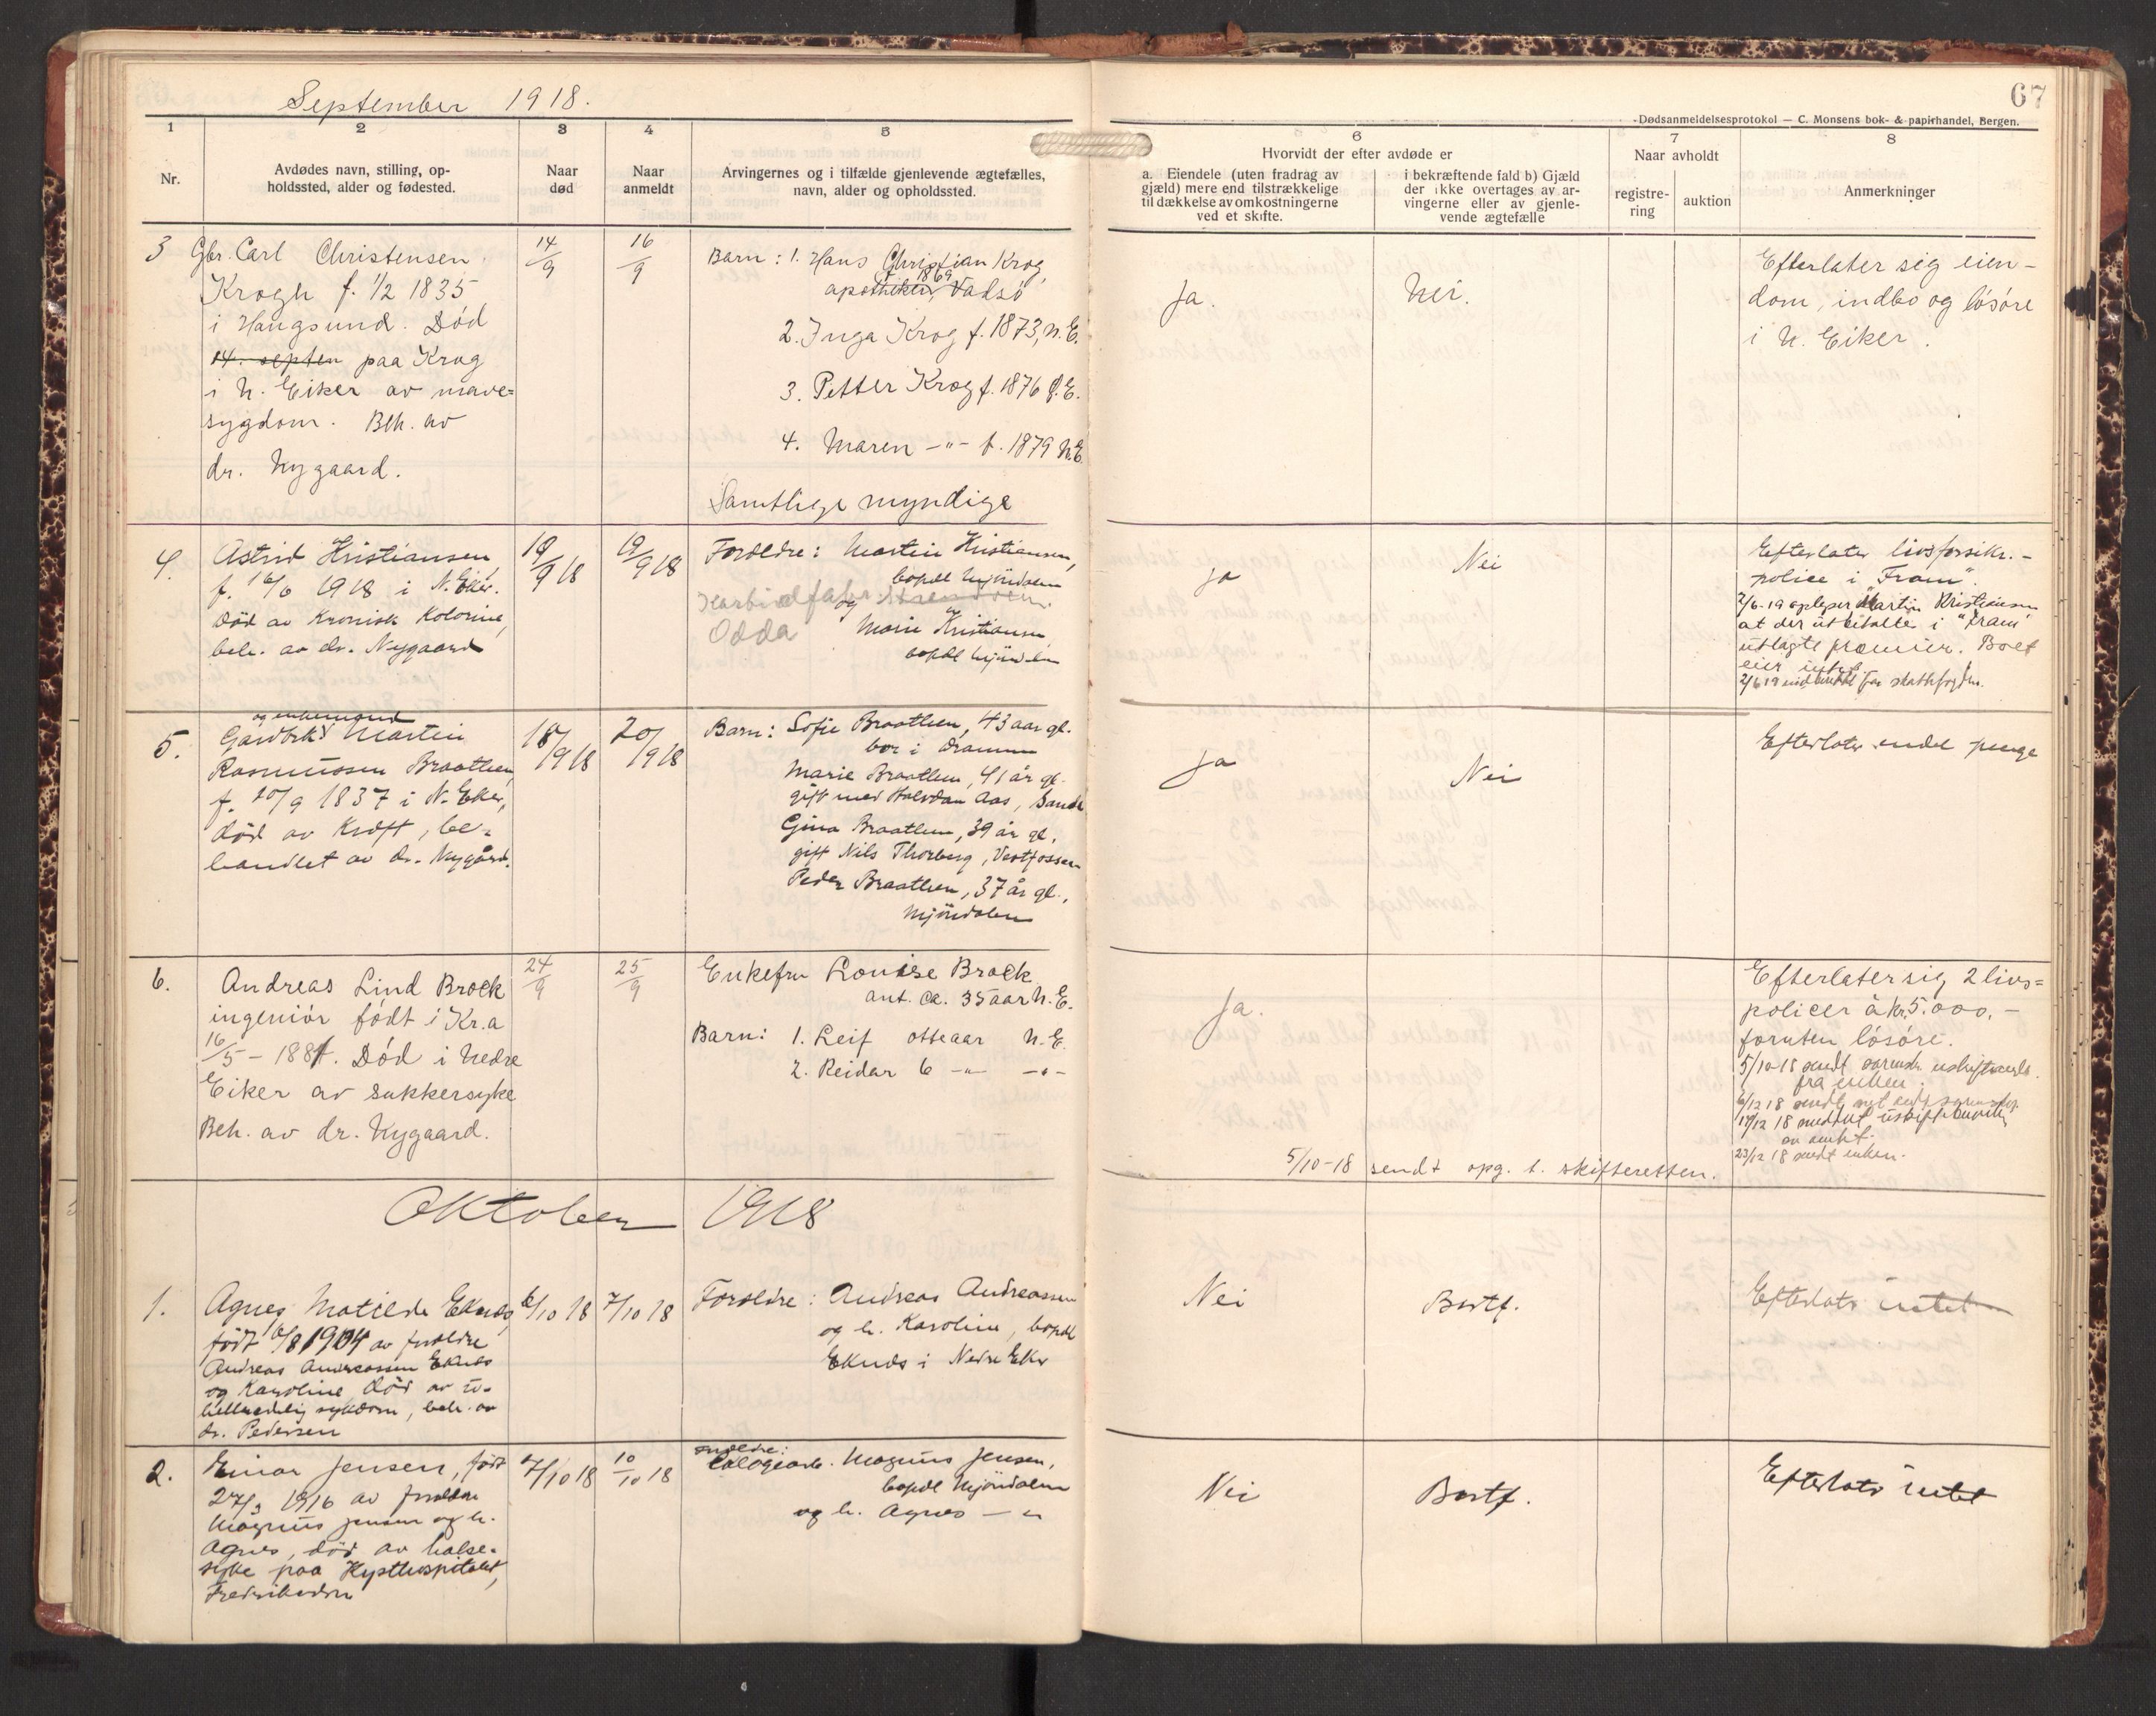 September 1918.
67
Dødsanmeldelsesprotokol — C. Monsens bok- & papirhandel, Bergen.
1
2
3
4
5
6
7
8
Nr.
Avdødes navn, stilling, op-
holdssted, alder og fødested.
Naar
død
Naar
anmeldt
Arvingernes og i tilfælde gjenlevende ægtefælles,
navn, alder og opholdssted.
Hvorvidt der efter avdøde er
a. Eiendele (uten fradrag av
gjæld) mere end tilstrækkelige
til dækkelse av omkostningerne
ved et skifte.
i bekræftende fald b) Gjæld
der ikke overtages av ar-
vingerne eller av gjenle-
vende ægtefælle
Naar avholdt
registre-
ring
auktion
Anmerkninger
3
Gbr. Carl Christensen
Krogh f. 1/2 1835
i Haugsund. Død
14. septem paa Krog
i N. Eiker av mave=
sygdom. Beh. av
dr. Nygaard.
14/9
16/9
Barn: 1. Hans Christian Krog,
f. 1869
apotheker, Vadsö
2. Inga Krog f. 1873, N.E.
3. Petter Krog f. 1876 Ø.E.
4. Maren -"- f. 1879 N.E.
Samtlige myndige
Ja.
Nei.
Efterlater sig eien-
dom, indbo og lösöre
i N. Eiker.
4.
Astrid Kristiansen,
f. 16/6 1918 i N. Eker.
Död av Kronisk Kolerine,
beh. av dr. Nygaard
18/9 18
19/9 18
Foreldre: Martin Kristiansen,
bopæl Mjöndalen
Karbidfabr.
og
Odda
Marie Kristiansen
bopæl Mjöndalen
Ja
Nei
Efterlater livsforsikr.-
police i "Fram".
2/6-19 oplyser Martin Kristiansen
at der utbetaltes i "Fram"
utlagte præmier. Boet
eier intet.
5.
og enkemand
Gårdbr. Martin
Rasmussen Braathen,
f. 20/9 1837 i N. Eker,
död av Kræft, be-
handlet av dr. Nygård.
18/9 18
20/9 18
Barn: Sofie Braathen, 43 aar gl.
bor i Drammen
Marie Braathen, 41 år gl.
gift med Halvdan Aas, Sande
Gina Braathen, 39 år gl.,
gift Nils Thorberg, Vestfossen
Peder Braathen, 37 år gl.,
Mjöndalen
Ja
Nei
Efterlater endel penge
6.
Andreas Lind Brock
ingeniör født i Kr.a
16/5 - 1881. Död i Nedre
Eiker av sukkersyke
Beh. av dr. Nygaard.
24/9
25/9
Enkefru Louise Brock
ant. ca. 35 aar N.E.
Barn: 1. Leif otte aar N.E.
2. Reidar 6 -"- -"-
Ja.
Efterlater sig 2 livs=
policer à kr. 5.000,-
foruten lösöre.
5/10-18 sendt
fra enken.
23/12 18 sendt enken.
5/10-18 sendt opg. t. skifteretten.
Oktober 1918
1.
Agnes Matilde Eknes,
född 16/8 1904 av foreldre
Andreas Andreassen Eknes
og Karoline, död av u-
helbredelig sykdom, beh. av
dr. Pedersen
6/10 18
7/10 18
Foreldre: Andreas Andreassen
og h. Karoline, bopæl
Eknes i Nedre Eker
Nei
Bortf.
Efterlater intet
2.
Einar Jensen, född
27/3 1916 av foreldre
Magnus Jensen og h.
Agnes, död av halse-
syke paa Kysthospitalet,
Fredriksvern
7/10 18
10/10 18
foreldre:
Magnus Jensen,
bopæl Mjöndalen
og h. Agnes - "
Nei
Bortf.
Efterlater intet